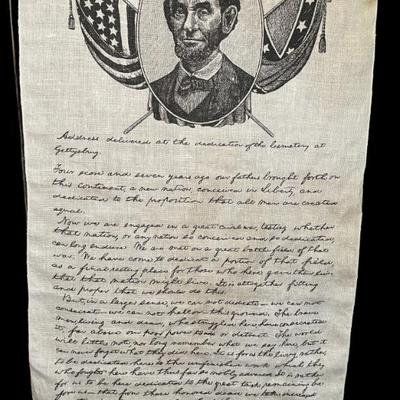 Address delivered at the dedication of the Cemetery at
Gettysburg.
Four score and seven years ago our fathers brought forth on
this continent, a new nation, conceived in Liberty, and
dedicated to the proposition that all men are created
equal.
Now we are engaged in a great civil war, testing whether
that nation, or any nation so conceived and so dedicated,
can long endure. We are met on a great battle field of that
war. We have come to dedicate a portion of that field,
as a final resting place for those who here gave their lives
that that nation might live. It is altogether fitting
and proper that we should do this.
But, in a larger sense, we can not dedicate— we can not
consecrate— we can not hallow— this ground. The brave
men, living and dead, who struggled here have consecrated
it, far above our poor power to add or detract. The world
will little note, nor long remember what we say here, but it
can never forget what they did here. It is for us the living, rather,
to be dedicated here to the unfinished work which they
who fought here have thus far so nobly advanced. It is rather
for us to be here dedicated to the great task remaining be-
fore us— that from these honored dead we take increased